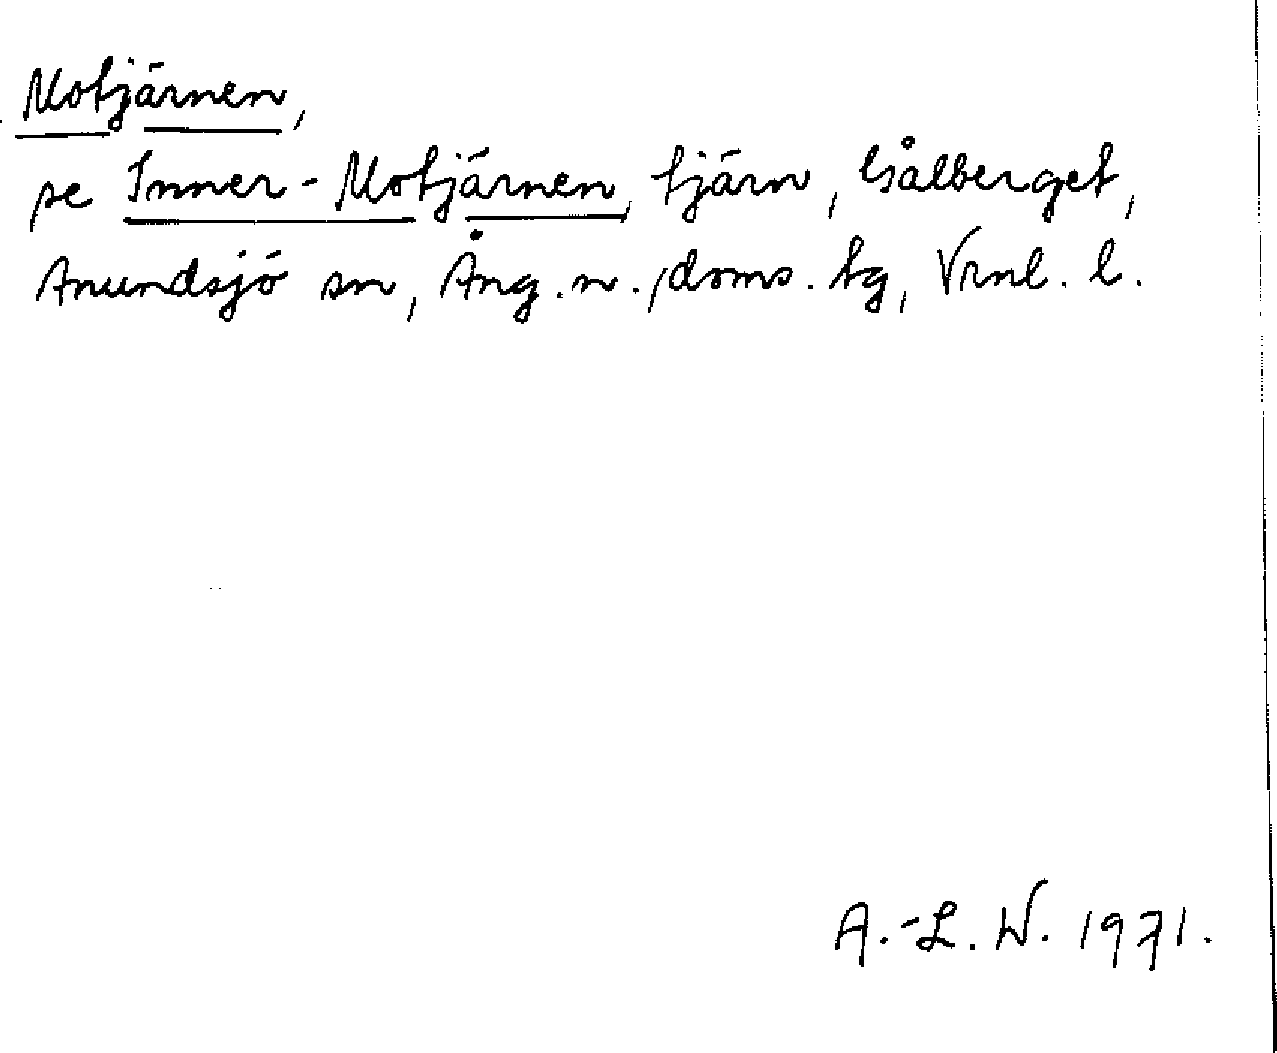 Motjärnen,
se Inner-Motjärnen, tjärn, Gålberget,
Anundsjö sn, Ång.n., doms. tg, Vrnl. l.
A.-L. W. 1971.